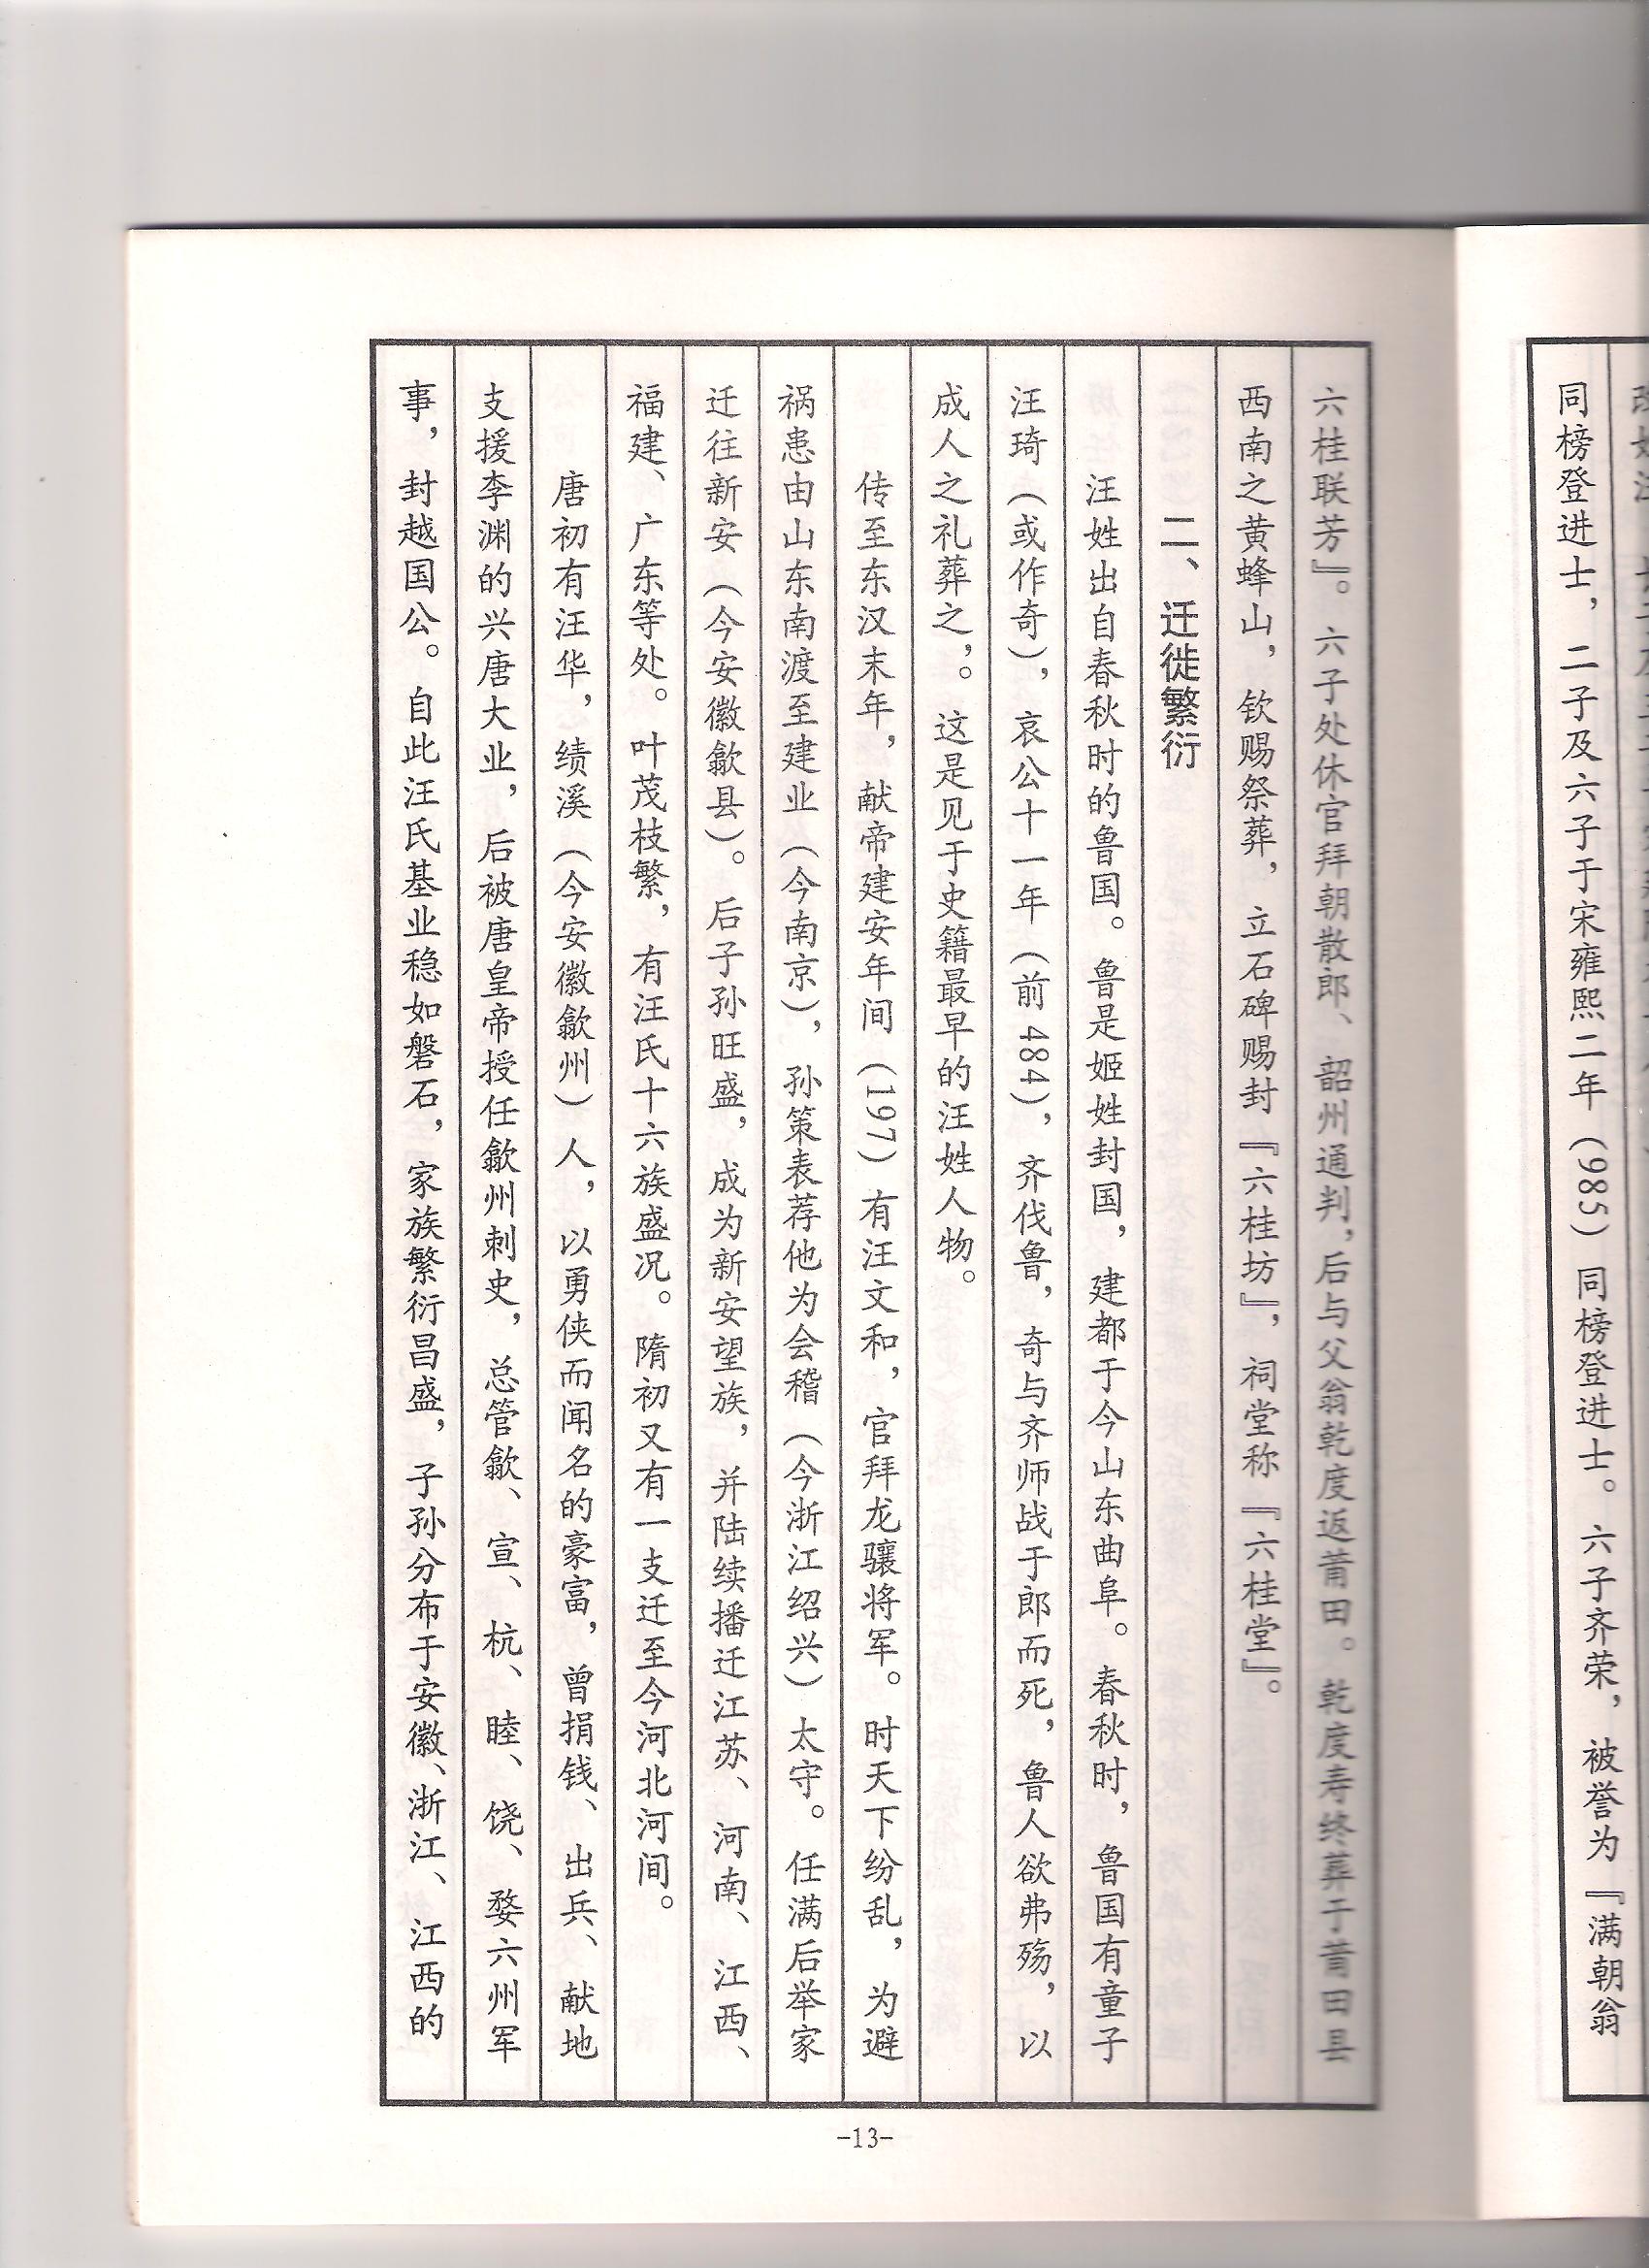 同榜登进士，二子及六子于宋雍熙二年（985）同榜登进士。六子齐荣，被誉为『满朝翁
六桂联芳』。六子处休官拜朝散郎、韶州通判，后与父翁乾度返莆田。乾度寿终葬于莆田县
西南之黄蜂山，钦赐祭葬，立石碑赐封『六桂坊』，祠堂称『六桂堂』。
二、迁徙繁衍
汪姓出自春秋时的鲁国。鲁是姬姓封国，建都于今山东曲阜。春秋时，鲁国有童子
汪琦（或作奇），哀公十一年（前484），齐伐鲁，奇与齐师战于郎而死，鲁人欲弗殇，以
成人之礼葬之，。这是见于史籍最早的汪姓人物。
传至东汉末年，献帝建安年间（197）有汪文和，官拜龙骧将军。时天下纷乱，为避
祸患由山东南渡至建业（今南京），孙策表荐他为会稽（今浙江绍兴）太守。任满后举家
迁往新安（今安徽歙县）。后子孙旺盛，成为新安望族，并陆续播迁江苏、河南、江西、
福建、广东等处。叶茂枝繁，有汪氏十六族盛况。隋初又有一支迁至今河北河间。
唐初有汪华，绩溪（今安徽歙州）人，以勇侠而闻名的豪富，曾捐钱、出兵、献地
支援李渊的兴唐大业，后被唐皇帝授任歙州刺史，总管歙、宣、杭、睦、饶、婺六州军
事，封越国公。自此汪氏基业稳如磐石，家族繁衍昌盛，子孙分布于安徽、浙江、江西的
-13-